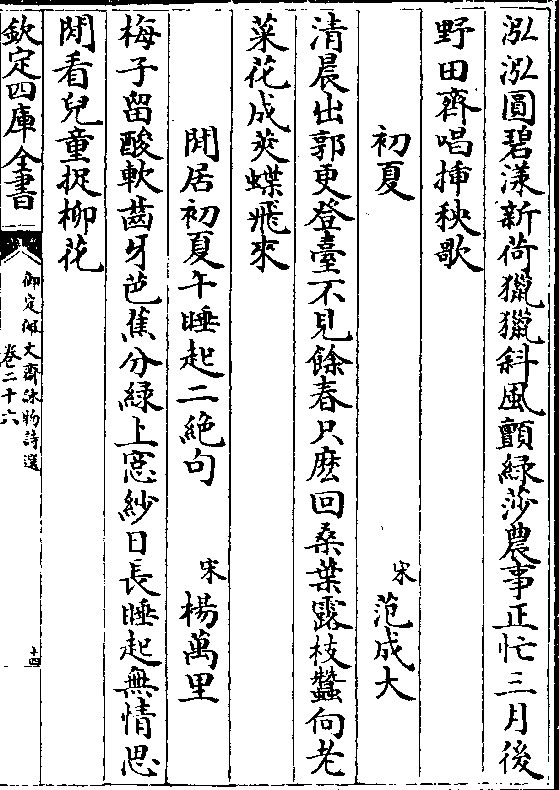 泓泓圓碧漾新荷獵獵斜風顫緑莎農事正忙三月後
野田齊唱揷秧歌
初夏　宋　范成大
清晨出郭更登臺不見餘春只麽回桑葉露枝蠶向老
菜花成莢蝶飛來
閒居初夏午睡起二絶句　宋　楊萬里
梅子留酸軟齒牙芭蕉分緑上窻紗日長睡起無情思
閒看兒童捉柳花
欽定四庫全書
御定佩文齋詠物詩選
卷二十六
十四